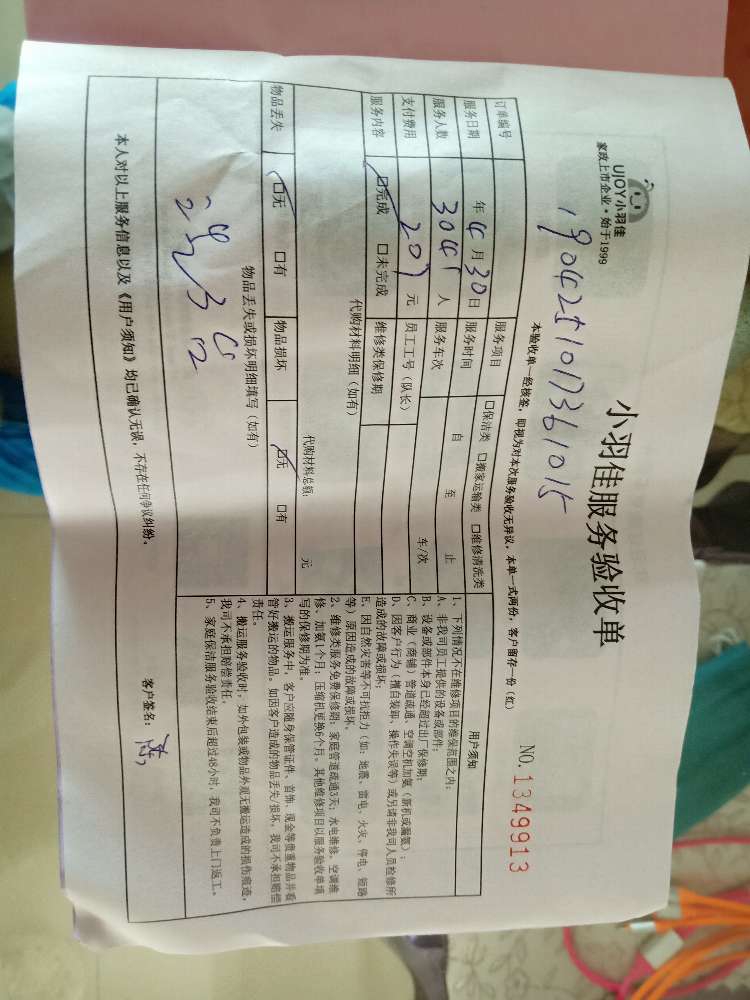 UJOY小羽佳
家政上市企业·始于1999
小羽佳服务验收单
NO.1349913
本验收单一经核签，即视为对本次服务验收无异议，本单一式两份，客户留存一份（红）
订单编号 190425101736 1015
服务项目 □保洁类 □搬家运输类 □维修清洗类
服务日期 年 4 月 30 日 服务时间 自 至 止
服务人数 人 服务车次 车/次
支付费用 207 元 员工工号（队长）
服务内容 □完成 □未完成 维修类保修期
代购材料明细（如有）
代购材料总额： 元
物品丢失 □无 □有 物品损坏 □无 □有
物品丢失或损坏明细填写（如有）
用户须知
1、下列情况不在维修项目的维保范围之内：
A、非我司员工提供的设备或部件；
B、设备或部件本身已经超过出厂保修期；
C、商业（商铺）管道疏通、空调空机加氨（新机或漏氨）；
D、因客户行为（擅自装卸、操作失误等）或另请非我司人员检修所
造成的故障或损坏；
E、因自然灾害等不可抗拒力（如：地震、雷电、火灾、停电、短路
等）原因造成的故障或损坏。
2、维修类服务免费保修期：家庭管道疏通3天；水电维修、空调维
修、加氨1个月；压缩机更换6个月。其他维修项目以服务验收单填
写的保修期为准。
3、搬运服务中，客户应随身保管证件、首饰、现金等贵重物品并看
管好搬运的物品。如因客户造成的物品丢失/损坏，我司不承担赔偿
责任。
4、搬运服务验收时，如外包装或物品外观无搬运造成的损伤痕迹，
我司不承担赔偿责任。
5、家庭保洁服务验收结束后超过48小时，我司不负责上门返工。
本人对以上服务信息以及《用户须知》均已确认无误，不存在任何争议纠纷。
客户签名：